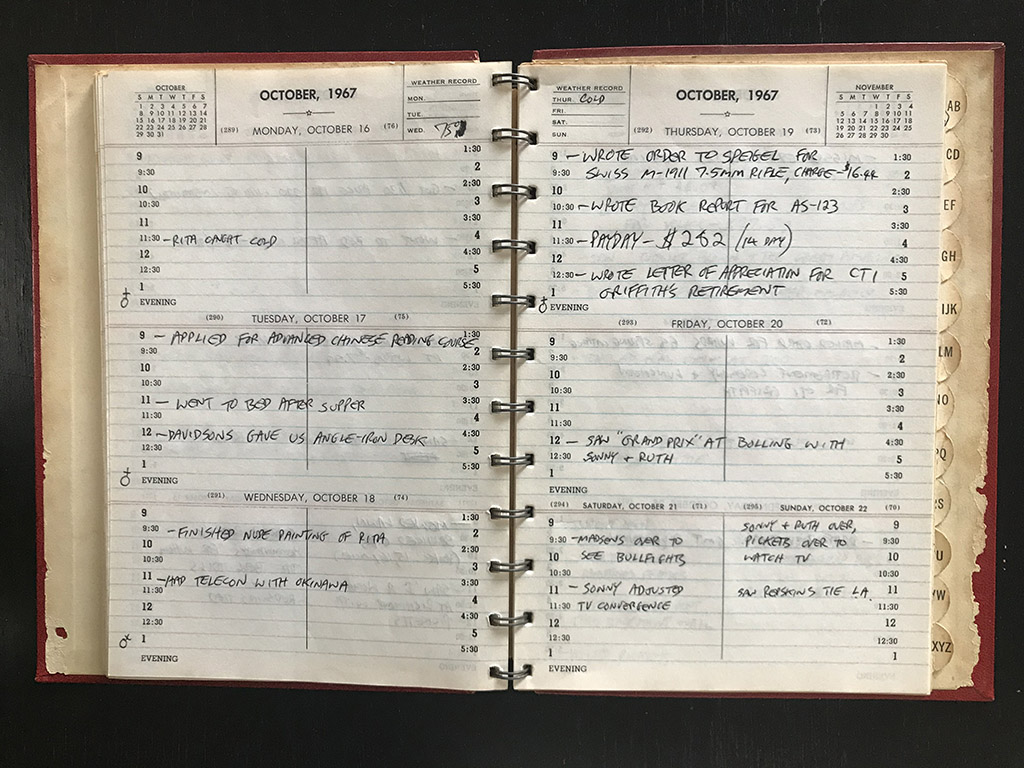 OCTOBER
S M T W T F S
1 2 3 4 5 6 7
8 9 10 11 12 13 14
15 16 17 18 19 20 21
22 23 24 25 26 27 28
29 30 31
OCTOBER, 1967
WEATHER RECORD
MON.
TUE.
WED. 75°
(289) MONDAY, OCTOBER 16 (76)
9 1:30
9:30 2
10 2:30
10:30 3
11 3:30
11:30 - RITA CAUGHT COLD 4
12 4:30
12:30 5
1 5:30
EVENING
(290) TUESDAY, OCTOBER 17 (75)
9 - APPLIED FOR ADVANCED CHINESE READING COURSE 1:30
9:30 2
10 2:30
10:30 3
11 - WENT TO BED AFTER SUPPER 3:30
11:30 4
12 - DAVIDSONS GAVE US ANGLE-IRON DESK 4:30
12:30 5
1 5:30
EVENING
(291) WEDNESDAY, OCTOBER 18 (74)
9 1:30
9:30 - FINISHED NUDE PAINTING OF RITA 2
10 2:30
10:30 3
11 - HAD TELECON WITH OKINAWA 3:30
11:30 4
12 4:30
12:30 5
1 5:30
EVENING
WEATHER RECORD
THUR. COLD
FRI.
SAT.
SUN.
OCTOBER, 1967
NOVEMBER
S M T W T F S
1 2 3 4
5 6 7 8 9 10 11
12 13 14 15 16 17 18
19 20 21 22 23 24 25
26 27 28 29 30
(292) THURSDAY, OCTOBER 19 (73)
9 - WROTE ORDER TO SPEIGEL FOR 1:30
9:30 SWISS M-1911 7.5MM RIFLE, CHARGE - $16.44 2
10 2:30
10:30 - WROTE BOOK REPORT FOR AS-123 3
11 3:30
11:30 - PAYDAY - $282 (14 DAY) 4
12 4:30
12:30 - WROTE LETTER OF APPRECIATION FOR CT1 5
1 GRIFFITH'S RETIREMENT 5:30
EVENING
(293) FRIDAY, OCTOBER 20 (72)
9 1:30
9:30 2
10 2:30
10:30 3
11 3:30
11:30 4
12 - SAW "GRAND PRIX" AT BOLLING WITH 4:30
12:30 SONNY + RUTH 5
1 5:30
EVENING
(294) SATURDAY, OCTOBER 21 (71)
9
9:30 - MADSENS OVER TO
10 SEE BULLFIGHTS
10:30
11 - SONNY ADJUSTED
11:30 TV CONVERGENCE
12
12:30
1
EVENING
(295) SUNDAY, OCTOBER 22 (70)
SONNY + RUTH OVER, 9
PICKETS OVER TO 9:30
WATCH TV 10
10:30
SAW REDSKINS TIE L.A. 11
11:30
12
12:30
1
AB
CD
EF
GH
IJK
LM
NO
PQ
RS
U
YW
XYZ